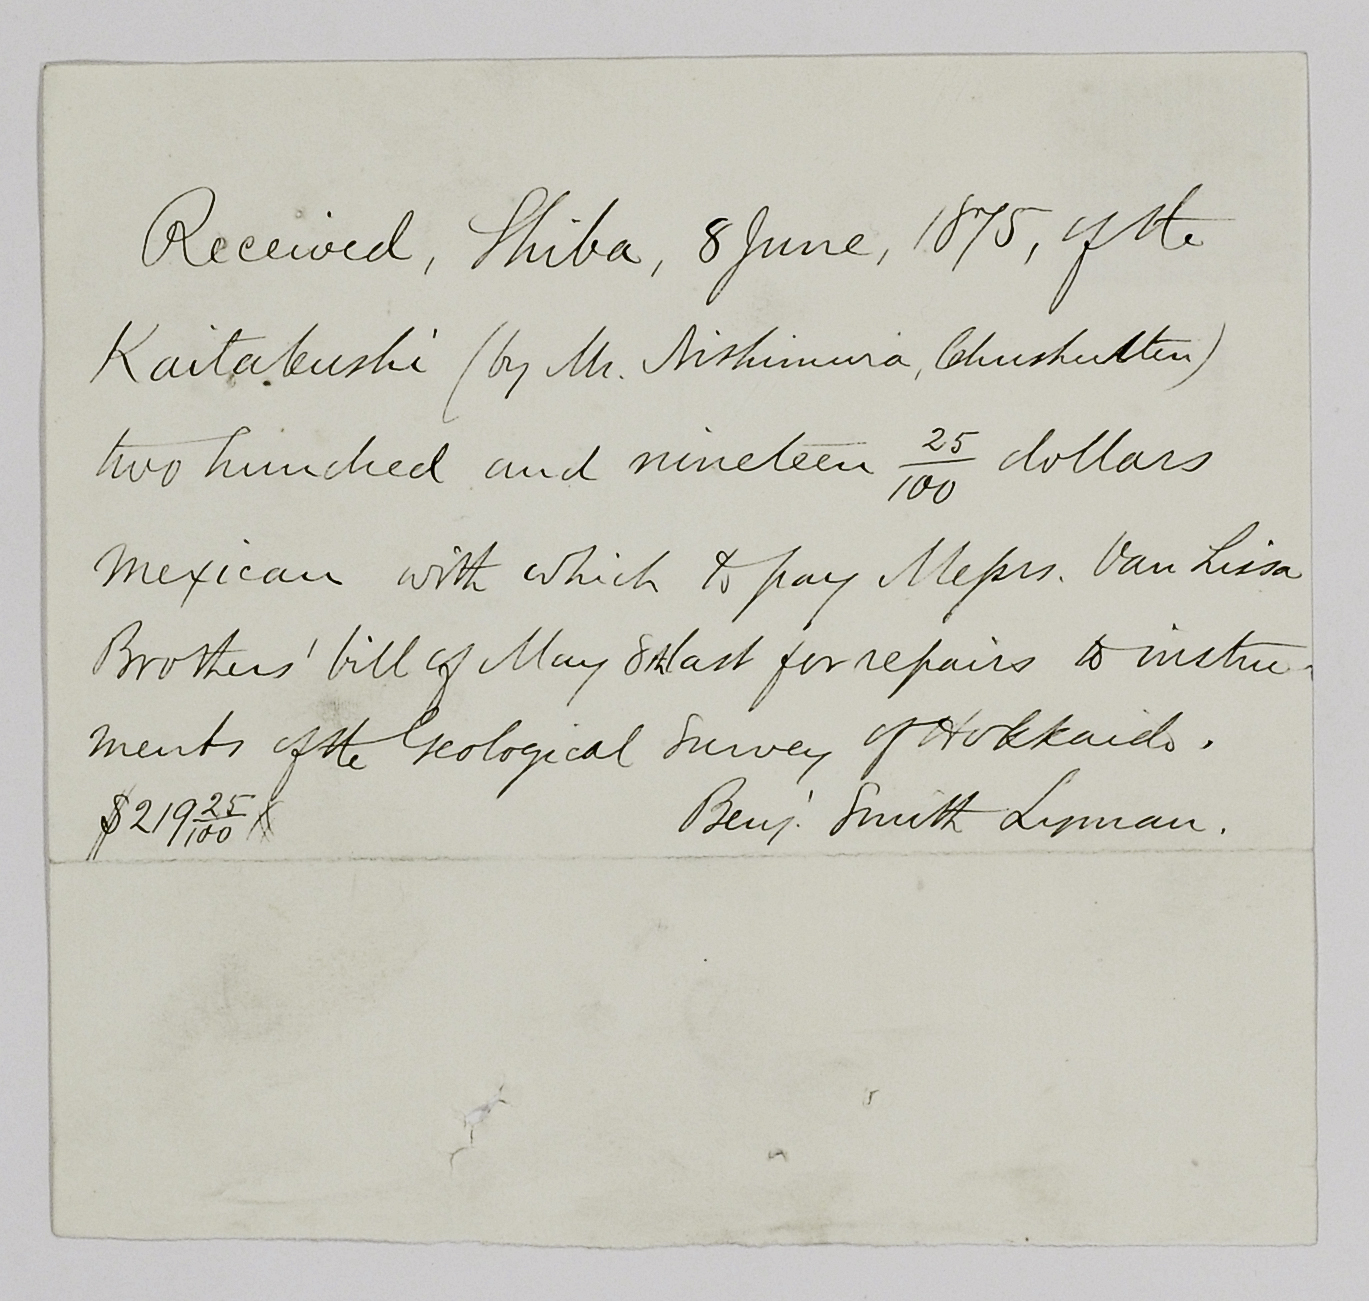 Received, Shiba, 8 June, 1875, of the
Kaitakushi (by Mr. Nishimura, Chushutten)
two hundred and nineteen 25/100 dollars
mexican with which to pay Messrs. Van Lissa
Brothers' bill of May 8th last for repairs to instru-
ments of the Geological Survey of Hokkaido.
$219 25/100
Benj. Smith Lyman.